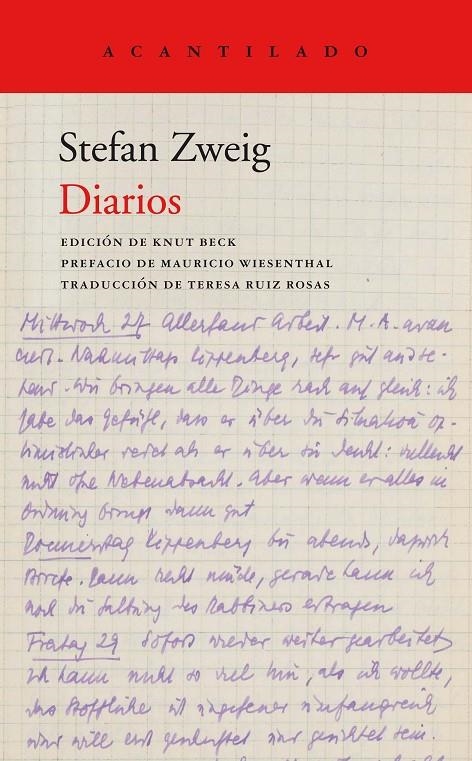 ACANTILADO
Stefan Zweig
Diarios
EDICIÓN DE KNUT BECK
PREFACIO DE MAURICIO WIESENTHAL
TRADUCCIÓN DE TERESA RUIZ ROSAS
Mittwoch 27 Allerhand Arbeit. M. A.
Nachmittags Kippenberg, sehr gut
Wir bringen alle Dinge rasch auf gleich: ich
habe das Gefühl, dass er über die Situation op-
timistischer als er über sie denkt: vielleicht
nicht ohne Nebenabsicht. Aber wenn er alles in
Ordnung bringt dann gut
Donnerstag Kippenberg bis abends,
Briefe. Dann recht müde, gerade kann ich
noch die des Rabbiners ertragen
Freitag 29 Sofort wieder weitergearbeitet,
ich kann nicht so viel hin, als ich wollte,
das Stoffliche ist ungeheuer umfangreich
nur will erst gesichtet sein.